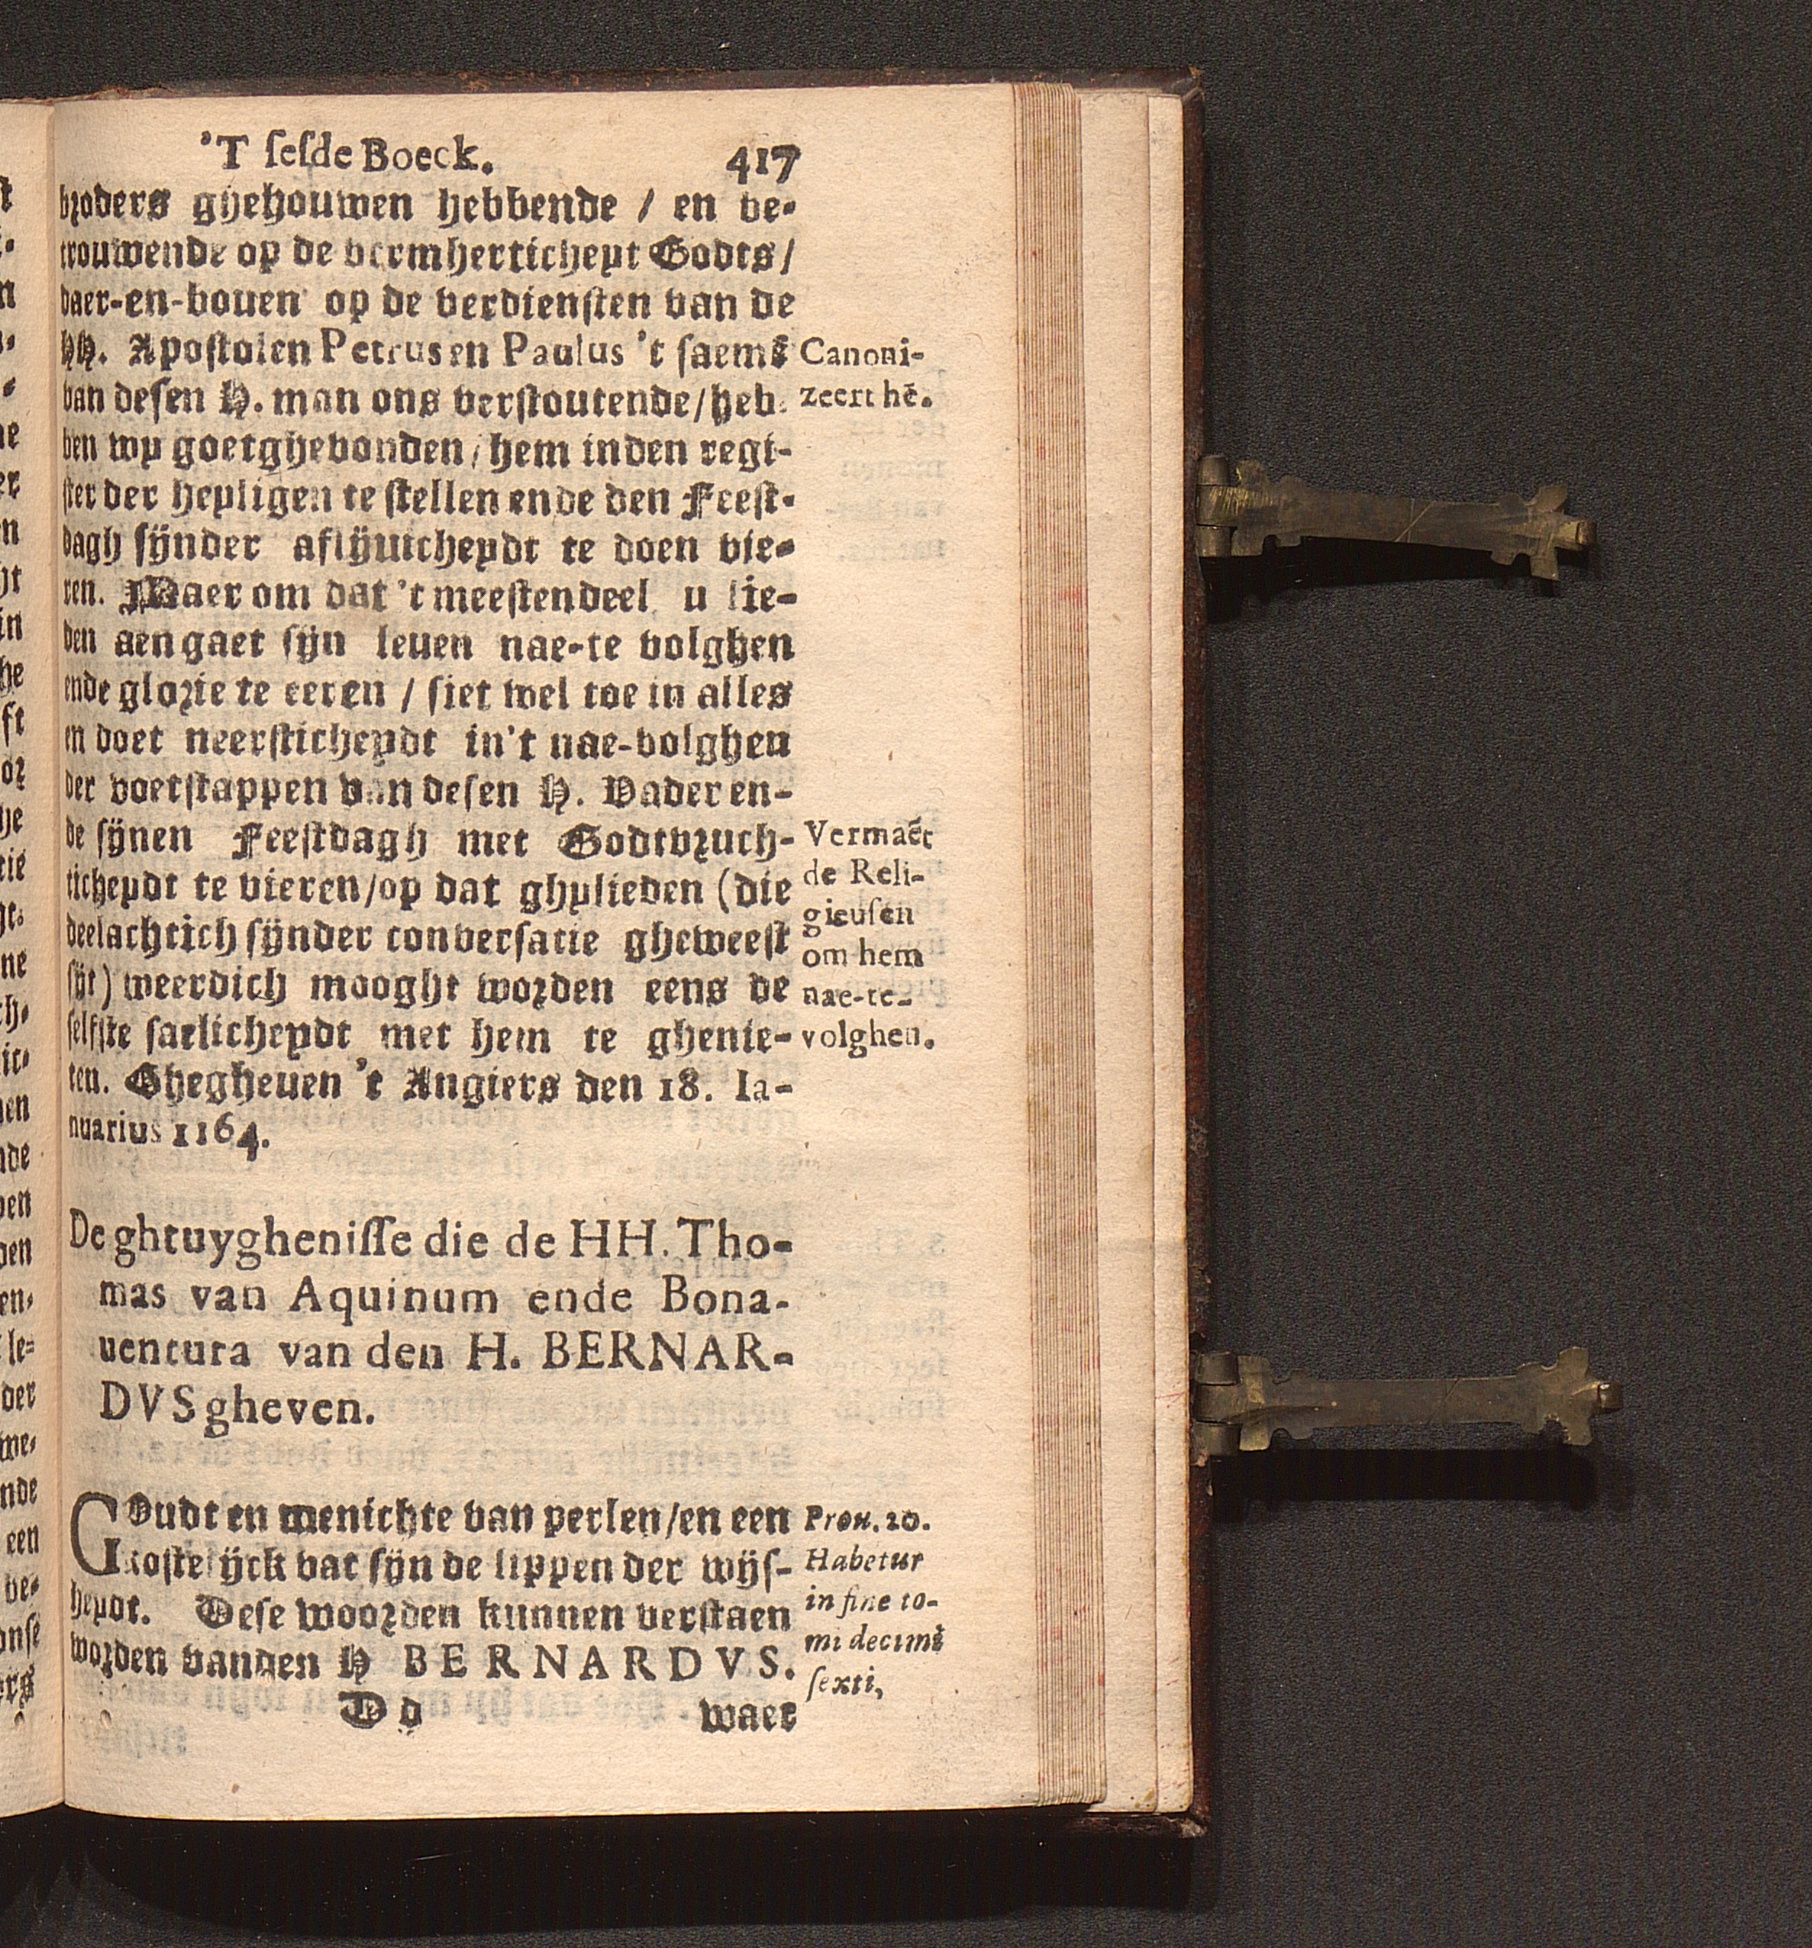 'T ſeſde Boeck. 417
broders ghehouwen hebbende / en be-
trouwende op de bermherticheyt Godts /
daer-en-bouen op de verdiensten van de
HH. Apostolen Petrus en Paulus 't saemẽ
van desen H. man ons verstoutende / heb-
ben wy goetghevonden / hem inden regi-
ster der heyligen te stellen ende den Feest-
dagh sijnder aflijuicheydt te doen vie-
ren. Maer om dat 't meestendeel u lie-
den aengaet sijn leuen nae-te volghen
ende glorie te eeren / siet wel toe in alles
en doet neersticheydt in't nae-volghen
der voetstappen van desen H. Vader en-
de sijnen Feestdagh met Godtvruch-
ticheydt te vieren / op dat ghylieden (die
deelachtich sijnder conversatie gheweest
sijt) weerdich mooght worden eens de
selfste saelicheydt met hem te ghenie-
ten. Ghegheuen 't Angiers den 18. Ia-
nuarius 1164.
Canoni-
zeert hē.
Vermaēt
de Reli-
gieuſen
om hem
nae-te-
volghen.
De ghtuygheniſſe die de HH. Tho-
mas van Aquinum ende Bona-
uentura van den H. BERNAR-
DVS gheven.
GOudt en menichte van perlen / en een
kostelijck vat sijn de lippen der wijs-
heydt. Dese woorden kunnen verstaen
worden vanden H BERNARDVS.
Prou. 20.
Habetur
in fine to-
mi decimi
ſexti,
Dd waer